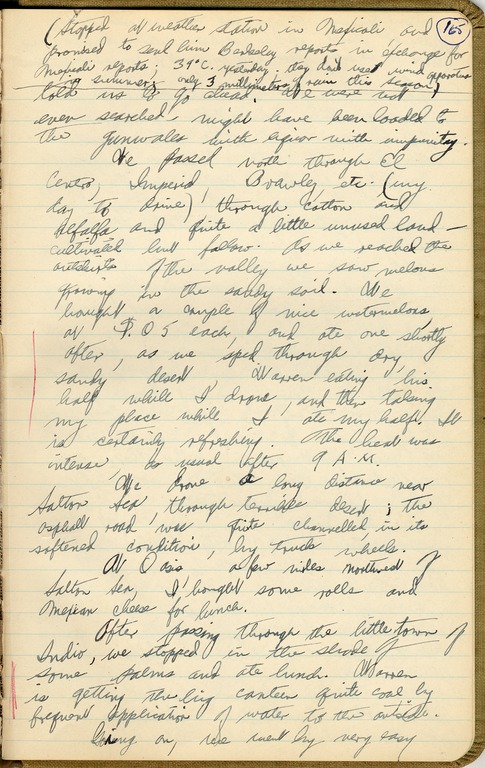 165
(Stopped at weather station in Mexicali and
promised to send him Berkeley reports in exchange for
Mexicali reports; 39°C. yesterday; they don't use wind apparatus
in summer; only 3 millimeters of rain this season)
told us to go ahead. We were not
even searched – might have been loaded to
the gunwales with liquor with impunity.
We passed north through El
Centro, Imperial, Brawley, etc. (my
day to drive) through cotton and
alfalfa and quite a little unused land –
cultivated but fallow. As we reached the
outskirts of the valley we saw melons
growing in the sandy soil. We
bought a couple of nice watermelons,
at $.05 each, and ate one shortly
after, as we sped through dry,
sandy desert, Warren eating his
half while I drove, and then taking
my place while I ate my half. It
is certainly refreshing. The heat was
intense, as usual after 9 A.M.
We drove a long distance near
Salton Sea, through terrible desert; the
asphalt road was quite channelled in its
softened condition, by truck wheels.
At Oasis, a few miles northwest of
Salton Sea, I bought some rolls and
Mexican cheese for lunch.
After passing through the little town of
Indio, we stopped in the shade of
some palms and ate lunch. Warren
is getting the big canteen quite cool by
frequent application of water to the outside.
Going on, we went by very easy